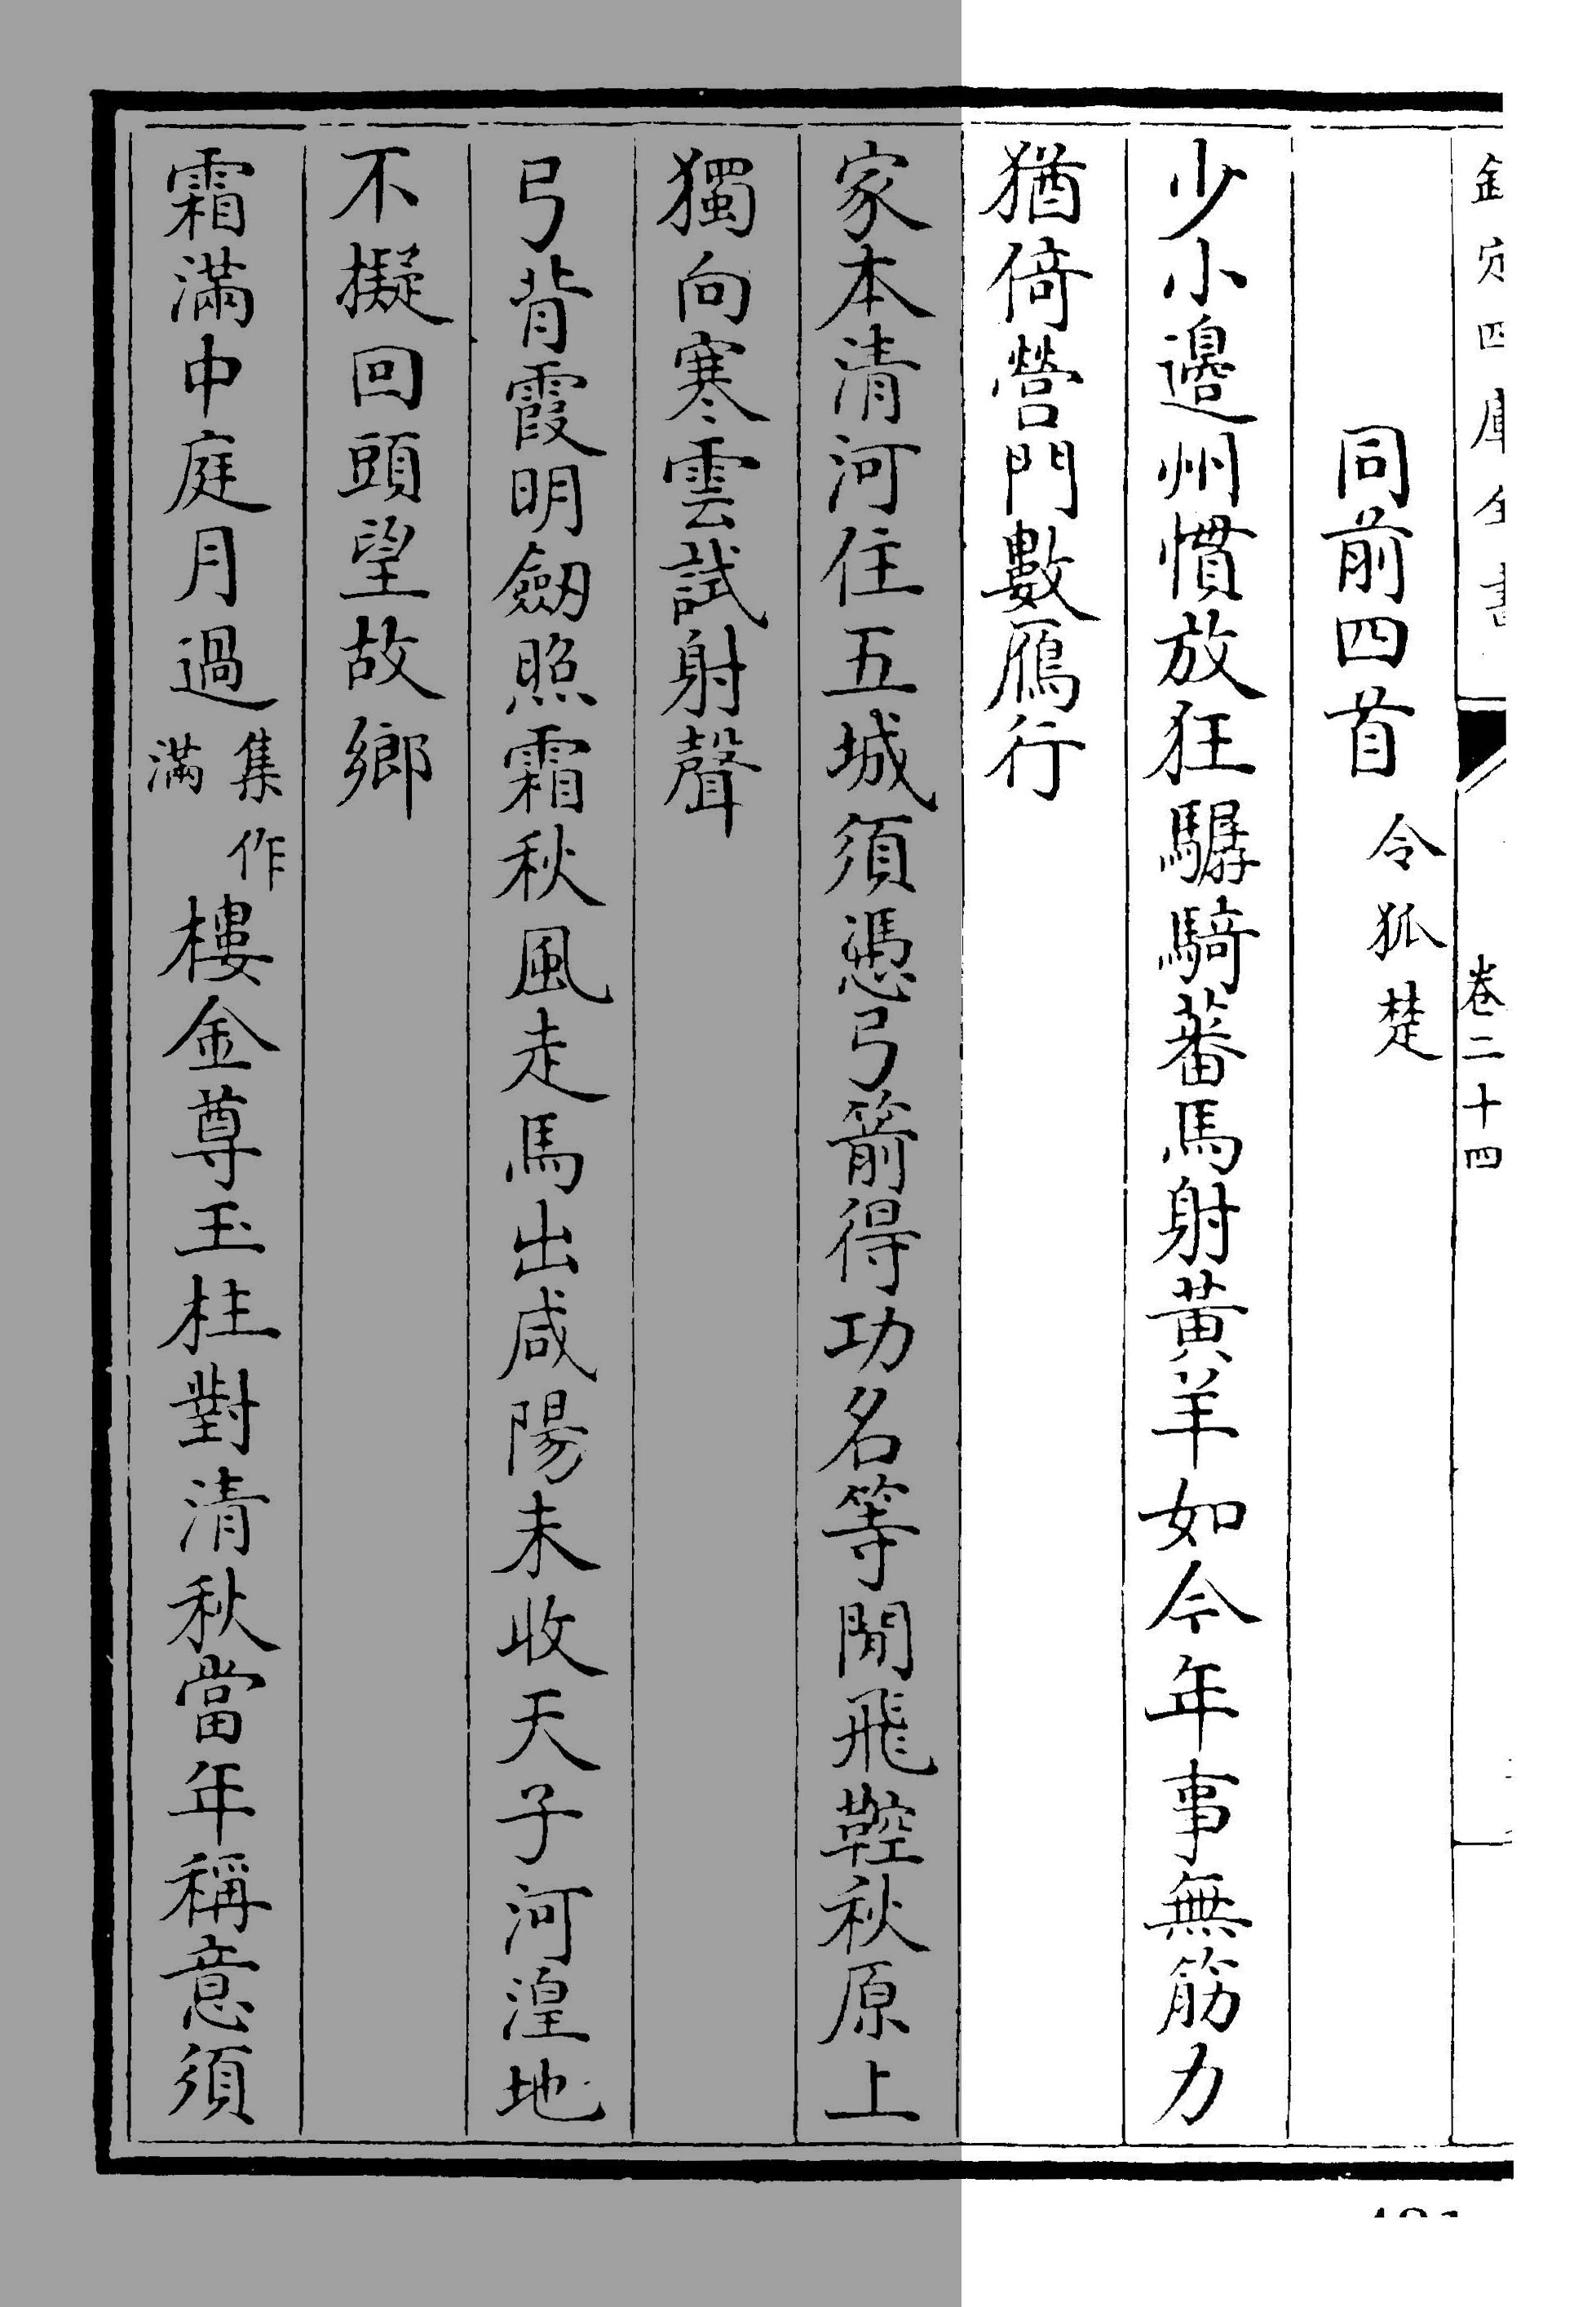 欽定四庫全書 卷二十四
同前四首 令狐楚
少小邊州慣放狂驏騎蕃馬射黃羊如今年事無筋力
猶倚營門數鴈行
家本清河住五城須憑弓箭得功名等閒飛鞚秋原上
獨向寒雲試射聲
弓背霞明劒照霜秋風走馬出咸陽未收天子河湟地
不擬回頭望故鄉
霜滿中庭月過集作滿樓金尊玉柱對清秋當年稱意須